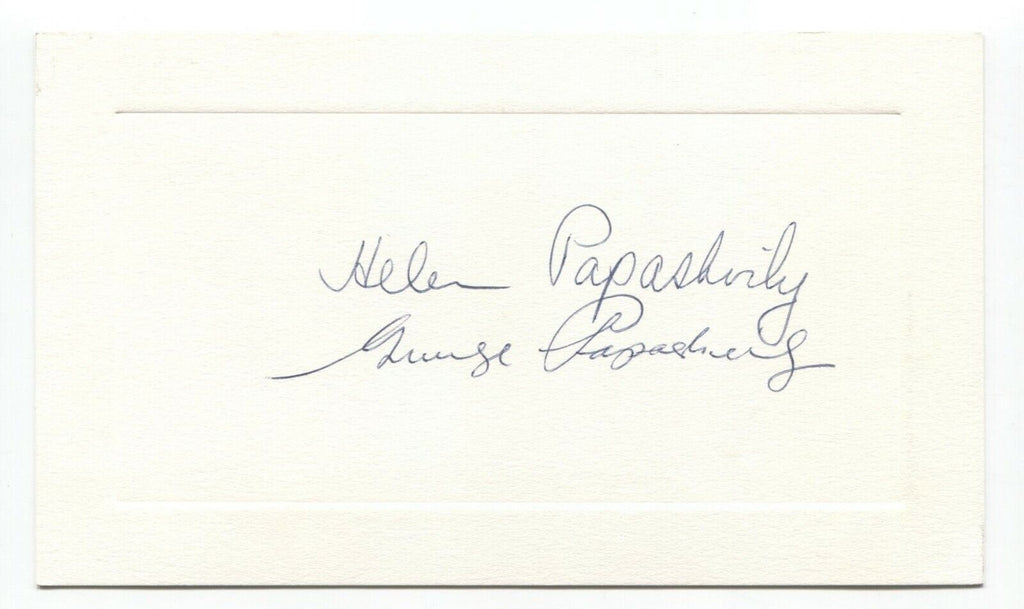 Helen Papashvily
George Papashvily